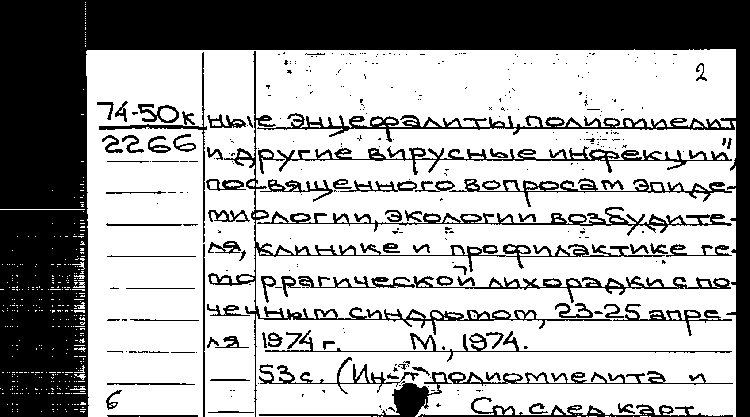 2
74-50к ные энцефалиты, полиомиелит
2266 и другие вирусные инфекции",
посвященного вопросам эпиде-
миологии, экологии возбудите-
ля, клинике и профилактике ге-
моррагической лихорадки с по-
чечным синдромом, 23-25 апре-
ля 1974 г. М., 1974.
— 53 с. (Ин-т полиомиелита и
6 См. след. карт.